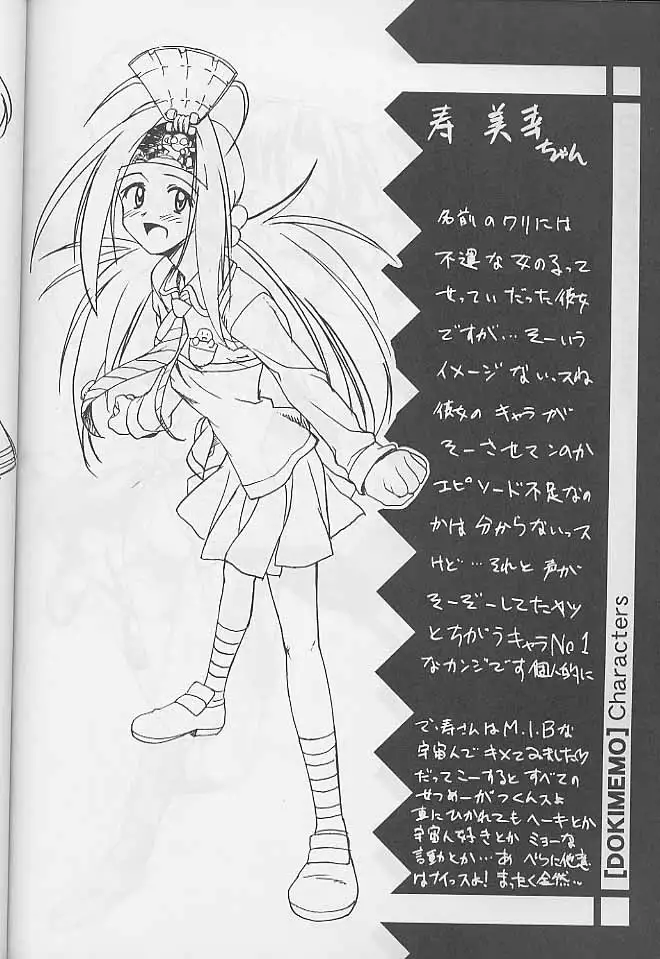 寿 美幸
ちゃん
名前のワリには
不運な女のるって
せっていだった彼女
ですが...そーいう
イメージないっスね
彼女のキャラが
そーさせてンのか
エピソード不足なの
かは分からないっス
けど...それと声が
そーぞーしてたヤツ
とちがうキャラNo1
なカンジです個人的に
で、寿さんはM.I.Bな
宇宙人でキメてみましたッ
だってこーするとすべての
せつめーがつくんスよ
車にひかれてもヘーキとか
宇宙人好きとかミョーな
言動とか...あ べらに他意
はナイっスよ!まったく全然...
[DOKIMEMO] Characters